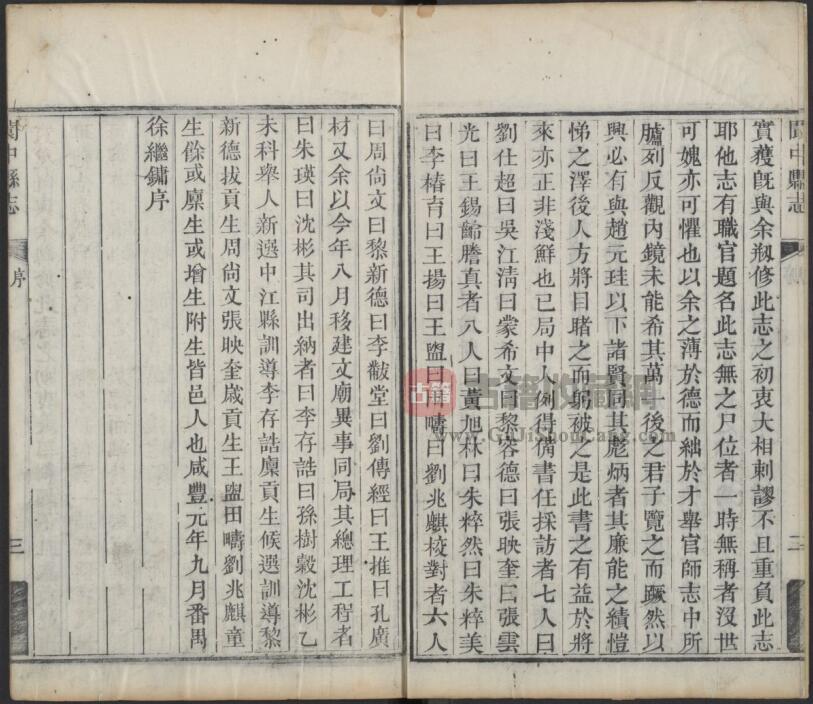 閬中縣志
二
實獲旣與余剏修此志之初衷大相刺謬不且重負此志
耶他志有職官題名此志無之尸位者一時無稱者沒世
可媿亦可懼也以余之薄於德而絀於才舉官師志中所
臚列反觀內鏡未能希其萬一後之君子覽之而蹶然以
興必有與趙元珪以下諸賢同其彪炳者其廉能之績愷
悌之澤後人方將目睹之而躬被之是此書之有益於將
來亦正非淺鮮也已局中人例得備書任採訪者七人曰
劉仕超曰吳江淸曰蒙希文曰黎容德曰張映奎曰張雲
光曰王錫齡謄真者八人曰黃旭林曰朱粹然曰朱粹美
曰李椿育曰王揚曰王盥曰田疇曰劉兆麒校對者六人
曰周尙文曰黎新德曰李黻堂曰劉傳經曰王推曰孔廣
材又余以今年八月移建文廟異事同局其總理工程者
曰朱瑛曰沈彬其司出納者曰李存誥曰孫樹穀沈彬乙
未科舉人新選中江縣訓導李存誥廩貢生候選訓導黎
新德拔貢生周尙文張映奎歲貢生王盥田疇劉兆麒童
生餘或廩生或增生附生皆邑人也咸豐元年九月番禺
徐繼鏞序
閬中縣志
序
三
古籍
古籍收藏網
www.GuJiShouCang.com